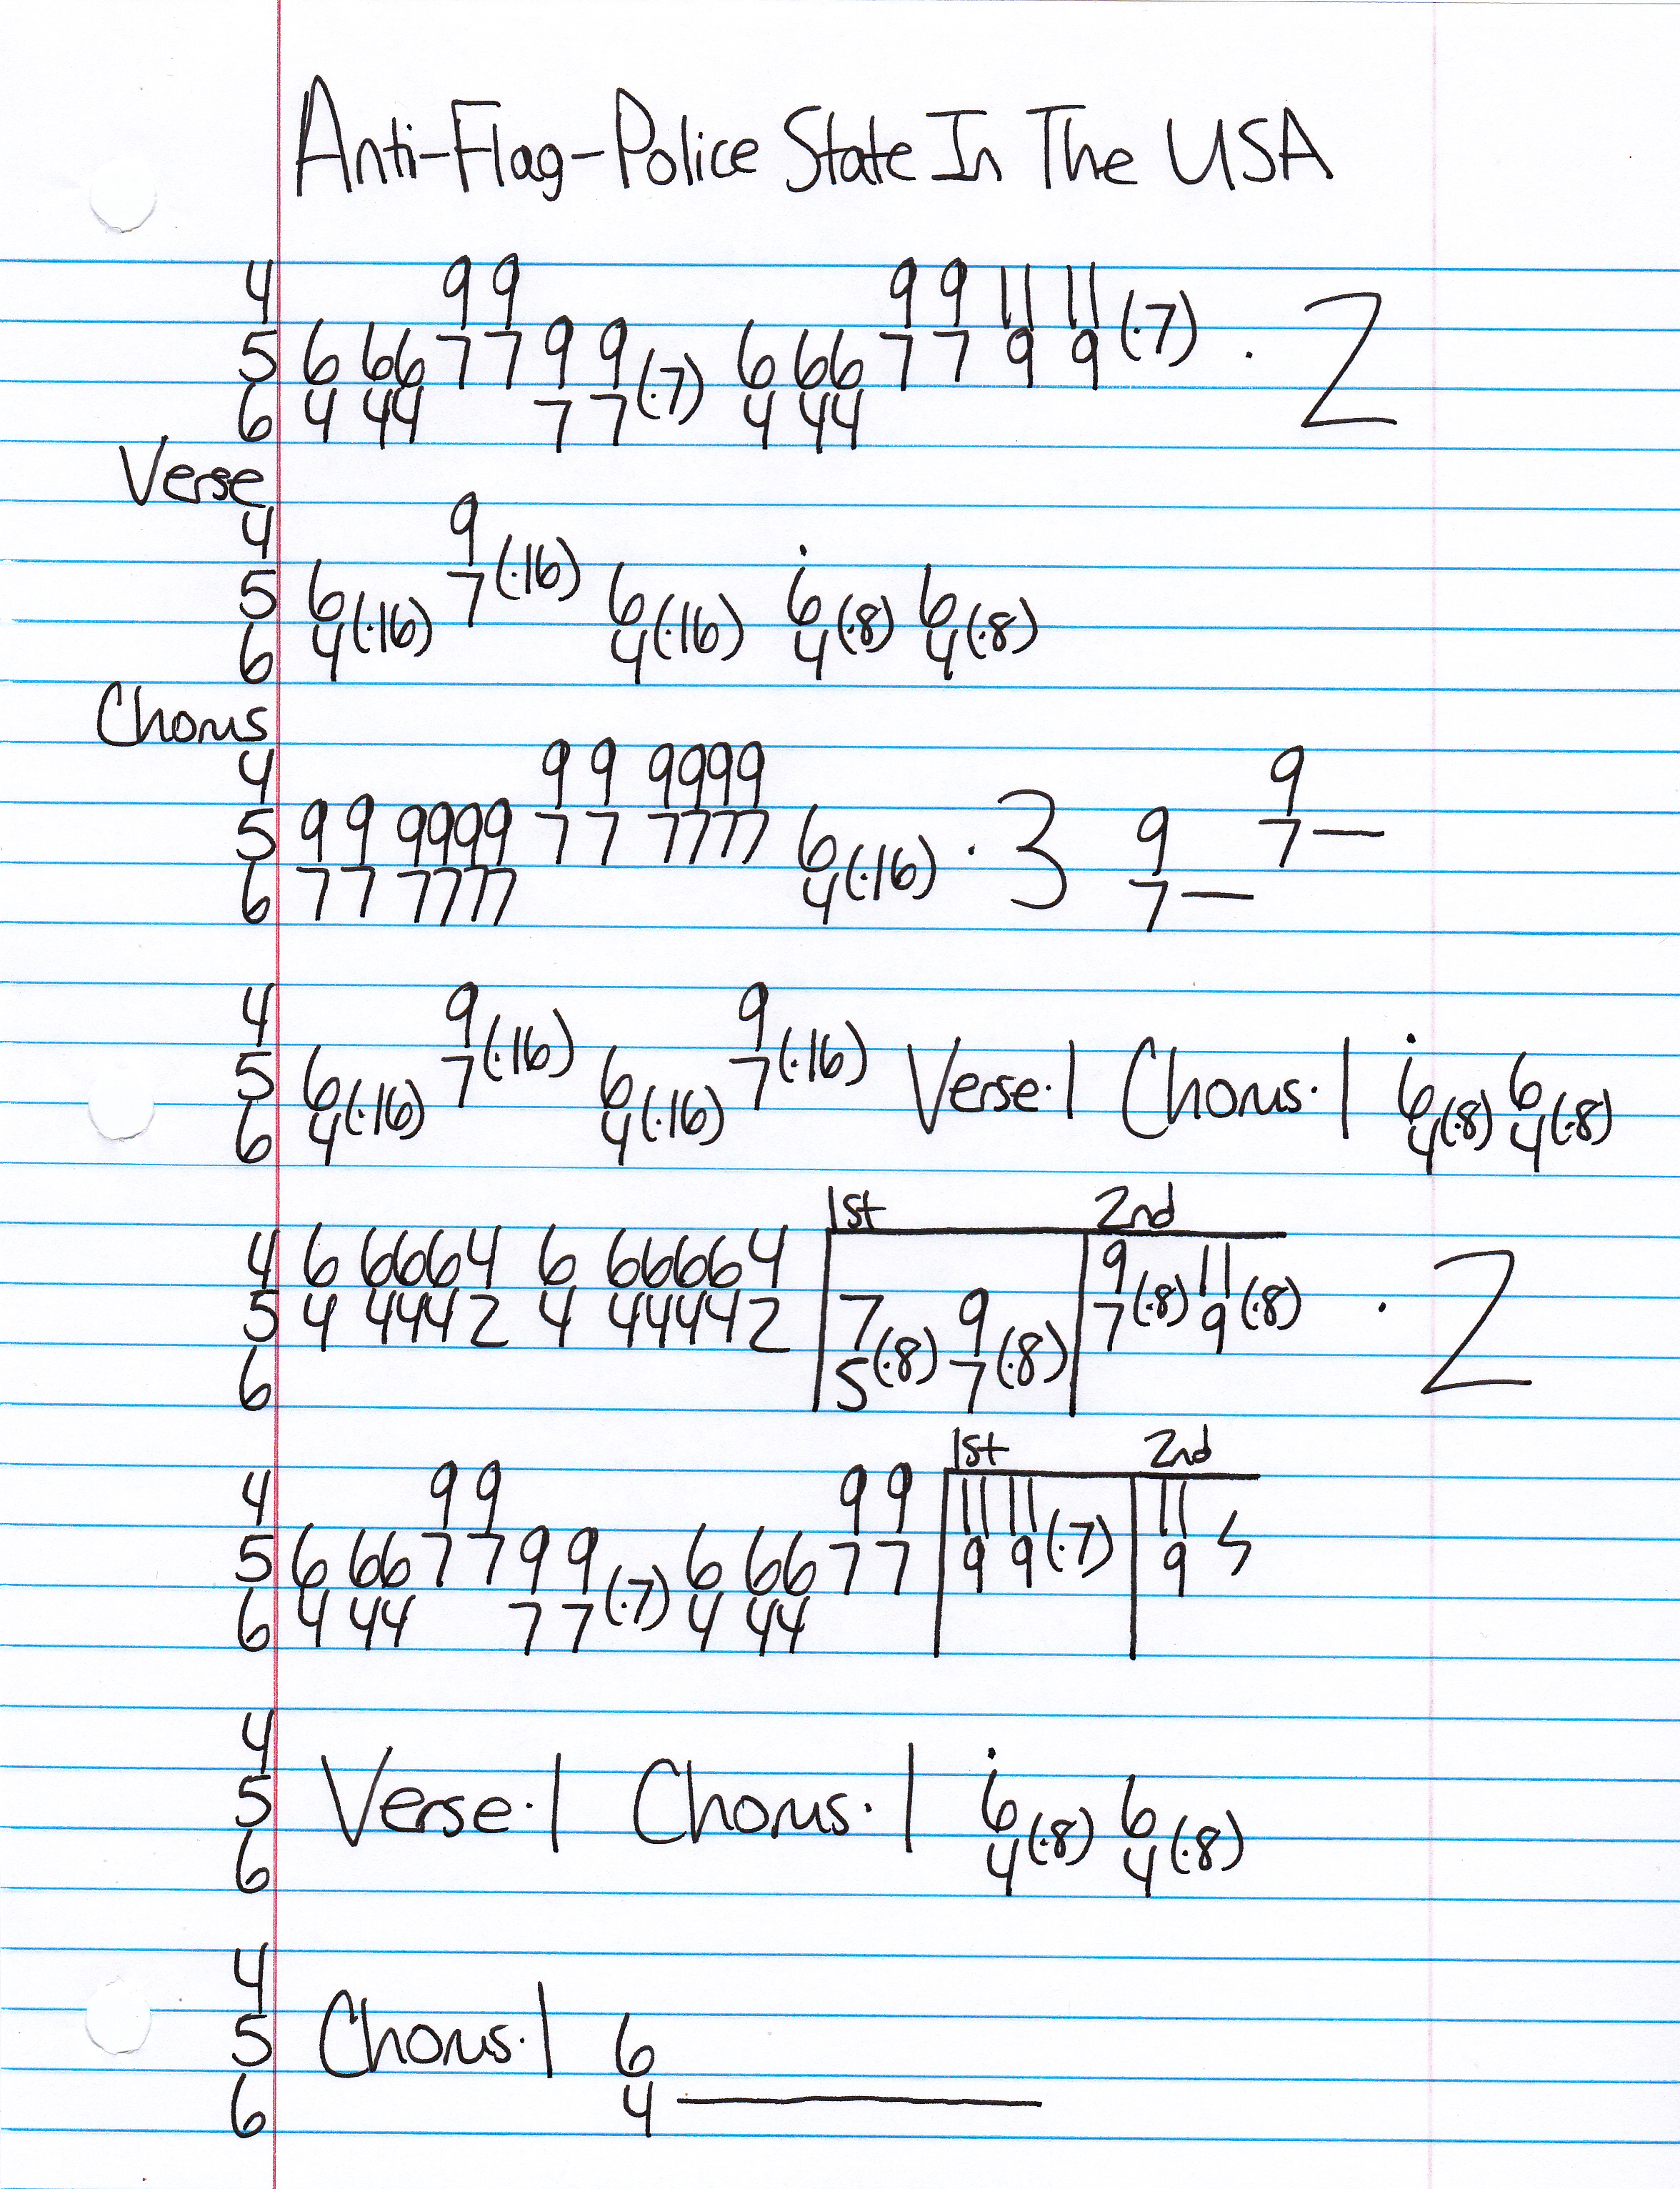 Anti-Flag-Police State In The USA
4 9 9 9 9 11 11
5 6 66 7 7 9 9 (·7) 6 66 7 7 9 9 (·7) · 2
6 4 44 7 7 4 44
Verse
4 9
5 6 7 (·16) 6 6 6
6 4 (·16) 4 (·16) 4 (·8) 4 (·8)
Chorus
4 9 9 9999 9
5 9 9 9999 7 7 7777 6 · 3 9 7 —
6 7 7 7777 4 (·16) 7 —
4 9 9
5 6 7 (·16) 6 7 (·16) Verse·1 Chorus·1 6 6
6 4 (·16) 4 (·16) 4 (·8) 4 (·8)
1st 2nd
4 6 6664 6 66664 9 11
5 4 4442 4 44442 7 9 7 (·8) 9 (·8) · 2
6 5 (·8) 7 (·8)
1st 2nd
4 9 9 9 9 11 11 11
5 6 66 7 7 9 9 6 66 7 7 9 9 (·7) 9
6 4 44 7 7 (·7) 4 44
4
5 Verse·1 Chorus·1 6 6
6 4 (·8) 4 (·8)
4
5 Chorus·1 6
6 4 —